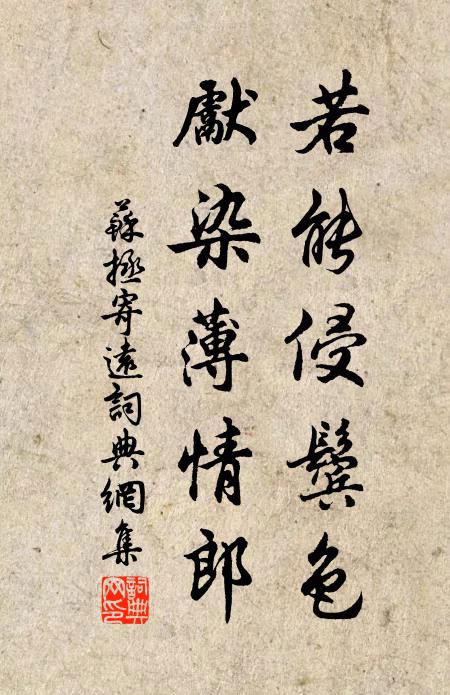 若能侵鬓色
獻染薄情郎
蘇拯寄遠詞典網集
詞典